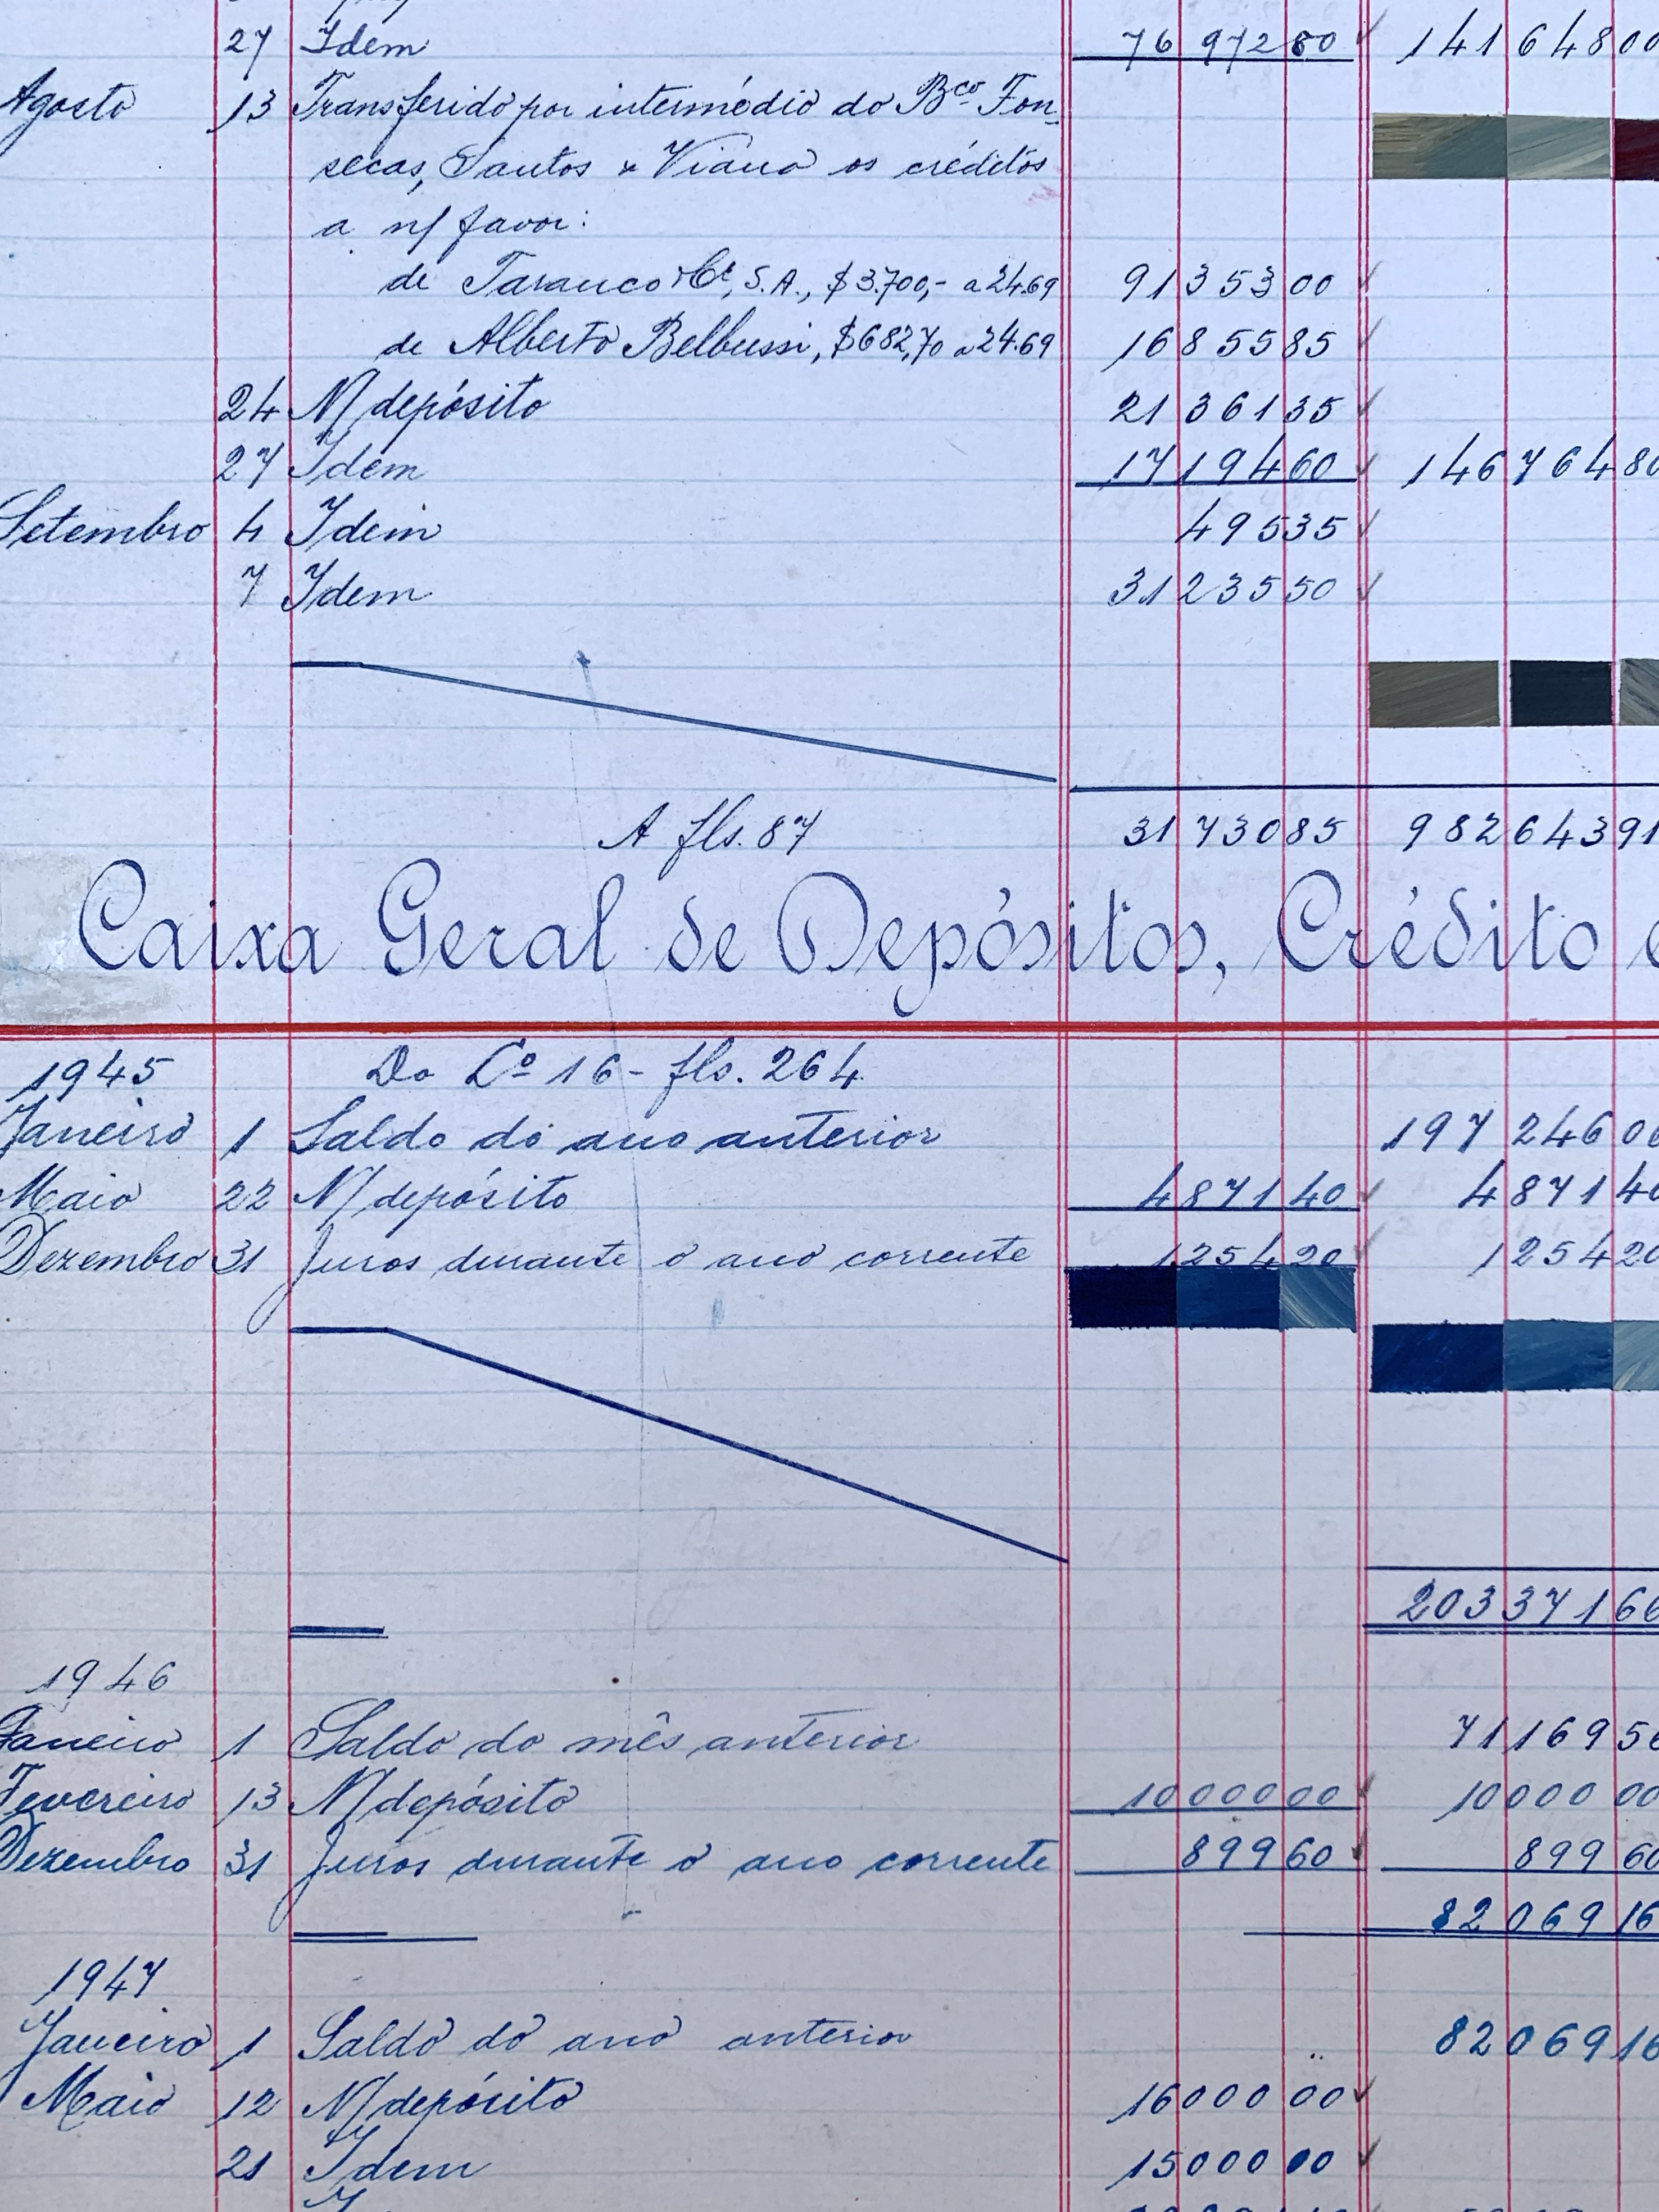 27 Idem 76 972 80 141 648 00
Agosto 13 Transferido por intermédio do Bco Fon-
secas, Santos & Viana os créditos
a n/ favor:
de Taranco & Cª, S.A., $ 3.700,- a 24.69 91 353 00
de Alberto Belbussi, $ 682,70 a 24.69 16 855 85
24 N/ depósito 21 361 35
27 Idem 17 194 60 146 764 80
Setembro 4 Idem 495 35
7 Idem 31 235 50
A fls. 87 31 730 85 982 643 91
Caixa Geral de Depósitos, Crédito e
1945 Do Lº 16 - fls. 264
Janeiro 1 Saldo do ano anterior 197 246 06
Maio 22 N/ depósito 4 871 40 4 871 40
Dezembro 31 Juros durante o ano corrente 1 254 20 1 254 20
203 371 66
1946
Janeiro 1 Saldo do mês anterior 71 169 56
Fevereiro 13 N/ depósito 10 000 00 10 000 00
Dezembro 31 Juros durante o ano corrente 899 60 899 60
82 069 16
1947
Janeiro 1 Saldo do ano anterior 82 069 16
Maio 12 N/ depósito 16 000 00
21 Idem 15 000 00